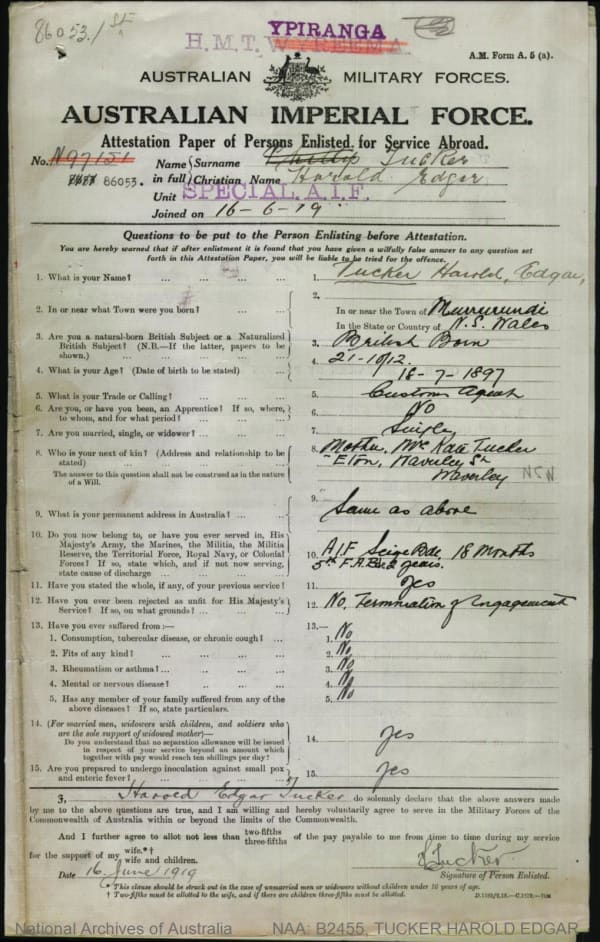 86053./ St
YPIRANGA
H.M.T. WYREEMA
A.M. Form A. 5 (a).
AUSTRALIAN MILITARY FORCES.
AUSTRALIAN IMPERIAL FORCE.
Attestation Paper of Persons Enlisted for Service Abroad.
No. N97151
86053.
Name in full
Surname Tucker
Christian Name Harold Edgar
Unit SPECIAL A.I.F.
Joined on 16-6-19
Questions to be put to the Person Enlisting before Attestation.
You are hereby warned that if after enlistment it is found that you have given a wilfully false answer to any question set
forth in this Attestation Paper, you will be liable to be tried for the offence.
1. What is your Name? ... ... ... ...
1. Tucker Harold, Edgar,
2. In or near what Town were you born? ... ...
2. In or near the Town of Murrurundi
In the State or Country of N.S. Wales
3. Are you a natural-born British Subject or a Naturalized
British Subject? (N.B.—If the latter, papers to be
shown.) ... ... ... ... ...
3. British Born
4. What is your Age? (Date of birth to be stated) ...
4. 21-10/12.
18-7-1897
5. What is your Trade or Calling? ... ... ...
5. Customs Agent
6. Are you, or have you been, an Apprentice? If so, where,
to whom, and for what period? ... ... ...
6. No
7. Are you married, single, or widower? ... ... ...
7. Single
8. Who is your next of kin? (Address and relationship to be
stated) ... ... ... ... ...
The answer to this question shall not be construed as in the nature
of a Will.
8. Mother, Mrs Kate Tucker
"Eton, Waverley St
Waverley NSW
9. What is your permanent address in Australia? ... ...
9. Same as above
10. Do you now belong to, or have you ever served in, His
Majesty's Army, the Marines, the Militia, the Militia
Reserve, the Territorial Force, Royal Navy, or Colonial
Forces? If so, state which, and if not now serving,
state cause of discharge ... ... ...
10. A.I.F Seige Bde 18 Months
5th F.A.Bde 2 years.
11. Have you stated the whole, if any, of your previous service?
11. Yes
12. Have you ever been rejected as unfit for His Majesty's
Service? If so, on what grounds? ... ...
12. No, Termination of Engagement
13. Have you ever suffered from:—
13.—
1. Consumption, tubercular disease, or chronic cough? ...
1. No
2. Fits of any kind? ... ... ... ...
2. No
3. Rheumatism or asthma? ... ... ... ...
3. No
4. Mental or nervous disease? ... ... ...
4. No
5. Has any member of your family suffered from any of the
above diseases? If so, state particulars.
5. No
14. (For married men, widowers with children, and soldiers who
are the sole support of widowed mother)—
Do you understand that no separation allowance will be issued
in respect of your service beyond an amount which
together with pay would reach ten shillings per day?
14. yes
15. Are you prepared to undergo inoculation against small pox
and enteric fever? ... ... ... ...
15. yes
I, Harold Edgar Tucker do solemnly declare that the above answers made
by me to the above questions are true, and I am willing and hereby voluntarily agree to serve in the Military Forces of the
Commonwealth of Australia within or beyond the limits of the Commonwealth.
And I further agree to allot not less than two-fifths three-fifths of the pay payable to me from time to time during my service
for the support of my wife.*† wife and children.
H Tucker
Date 16 June 1919
Signature of Person Enlisted.
* This clause should be struck out in the case of unmarried men or widowers without children under 16 years of age.
† Two-fifths must be allotted to the wife, and if there are children three-fifths must be allotted.
National Archives of Australia
NAA: B2455, TUCKER HAROLD EDGAR